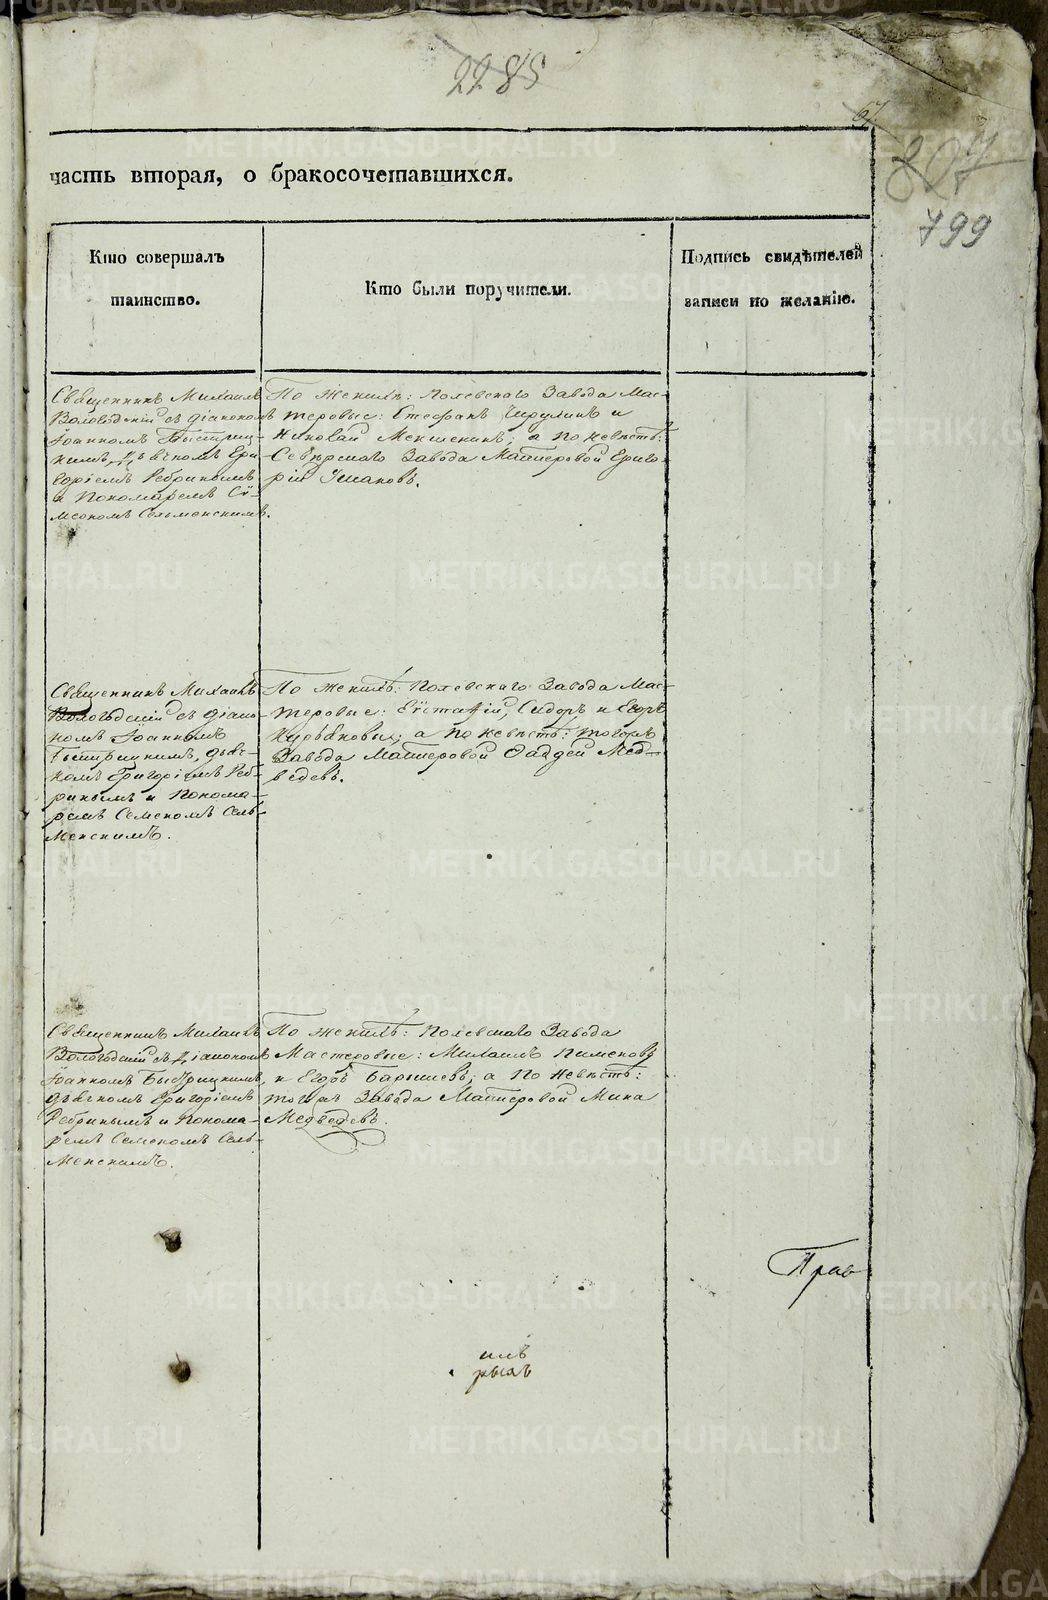 2285
67.
807
799
часть вторая, о бракосочетавшихся.
Кто совершалъ
таинство.
Кто были поручители.
Подпись свидѣтелей
записи по желанію.
Священникъ Михаилъ
Вологодскій съ діакономъ
Іоанномъ Быстриц-
кимъ, дьячкомъ Гри-
горіемъ Ребринымъ
и Пономаремъ Сѵ-
меономъ Сельменскимъ.
По женихѣ: Полевскаго Завода Мас-
теровые: Стефанъ и
Николай; а по невѣстѣ:
Сѣверскаго Завода Мастеровой Григо-
рій Ушаковъ.
Священникъ Михаилъ
Вологодскій съ діако-
номъ Іоанномъ
Быстрицкимъ, дьяч-
комъ Григоріемъ Реб-
ринымъ и Понома-
ремъ Семеномъ Сель-
менскимъ.
По женихѣ: Полевскаго Завода Мас-
теровые: Сидоръ и Егоръ
а по невѣстѣ: тогожъ
Завода Мастеровой Фаддей Мед-
ведевъ.
Священникъ Михаилъ
Вологодскій съ Діакономъ
Іоанномъ Быстрицкимъ,
дьячкомъ Григоріемъ
Ребринымъ и Понома-
ремъ Семеномъ Сель-
менскимъ.
По женихѣ: Полевскаго Завода
Мастеровые: Михаилъ Пименовъ
и Егоръ Барышевъ; а по невѣстѣ:
тогожъ Завода Мастеровой Мина
Медведевъ.
Прав
METRIKI.GASO-URAL.RU